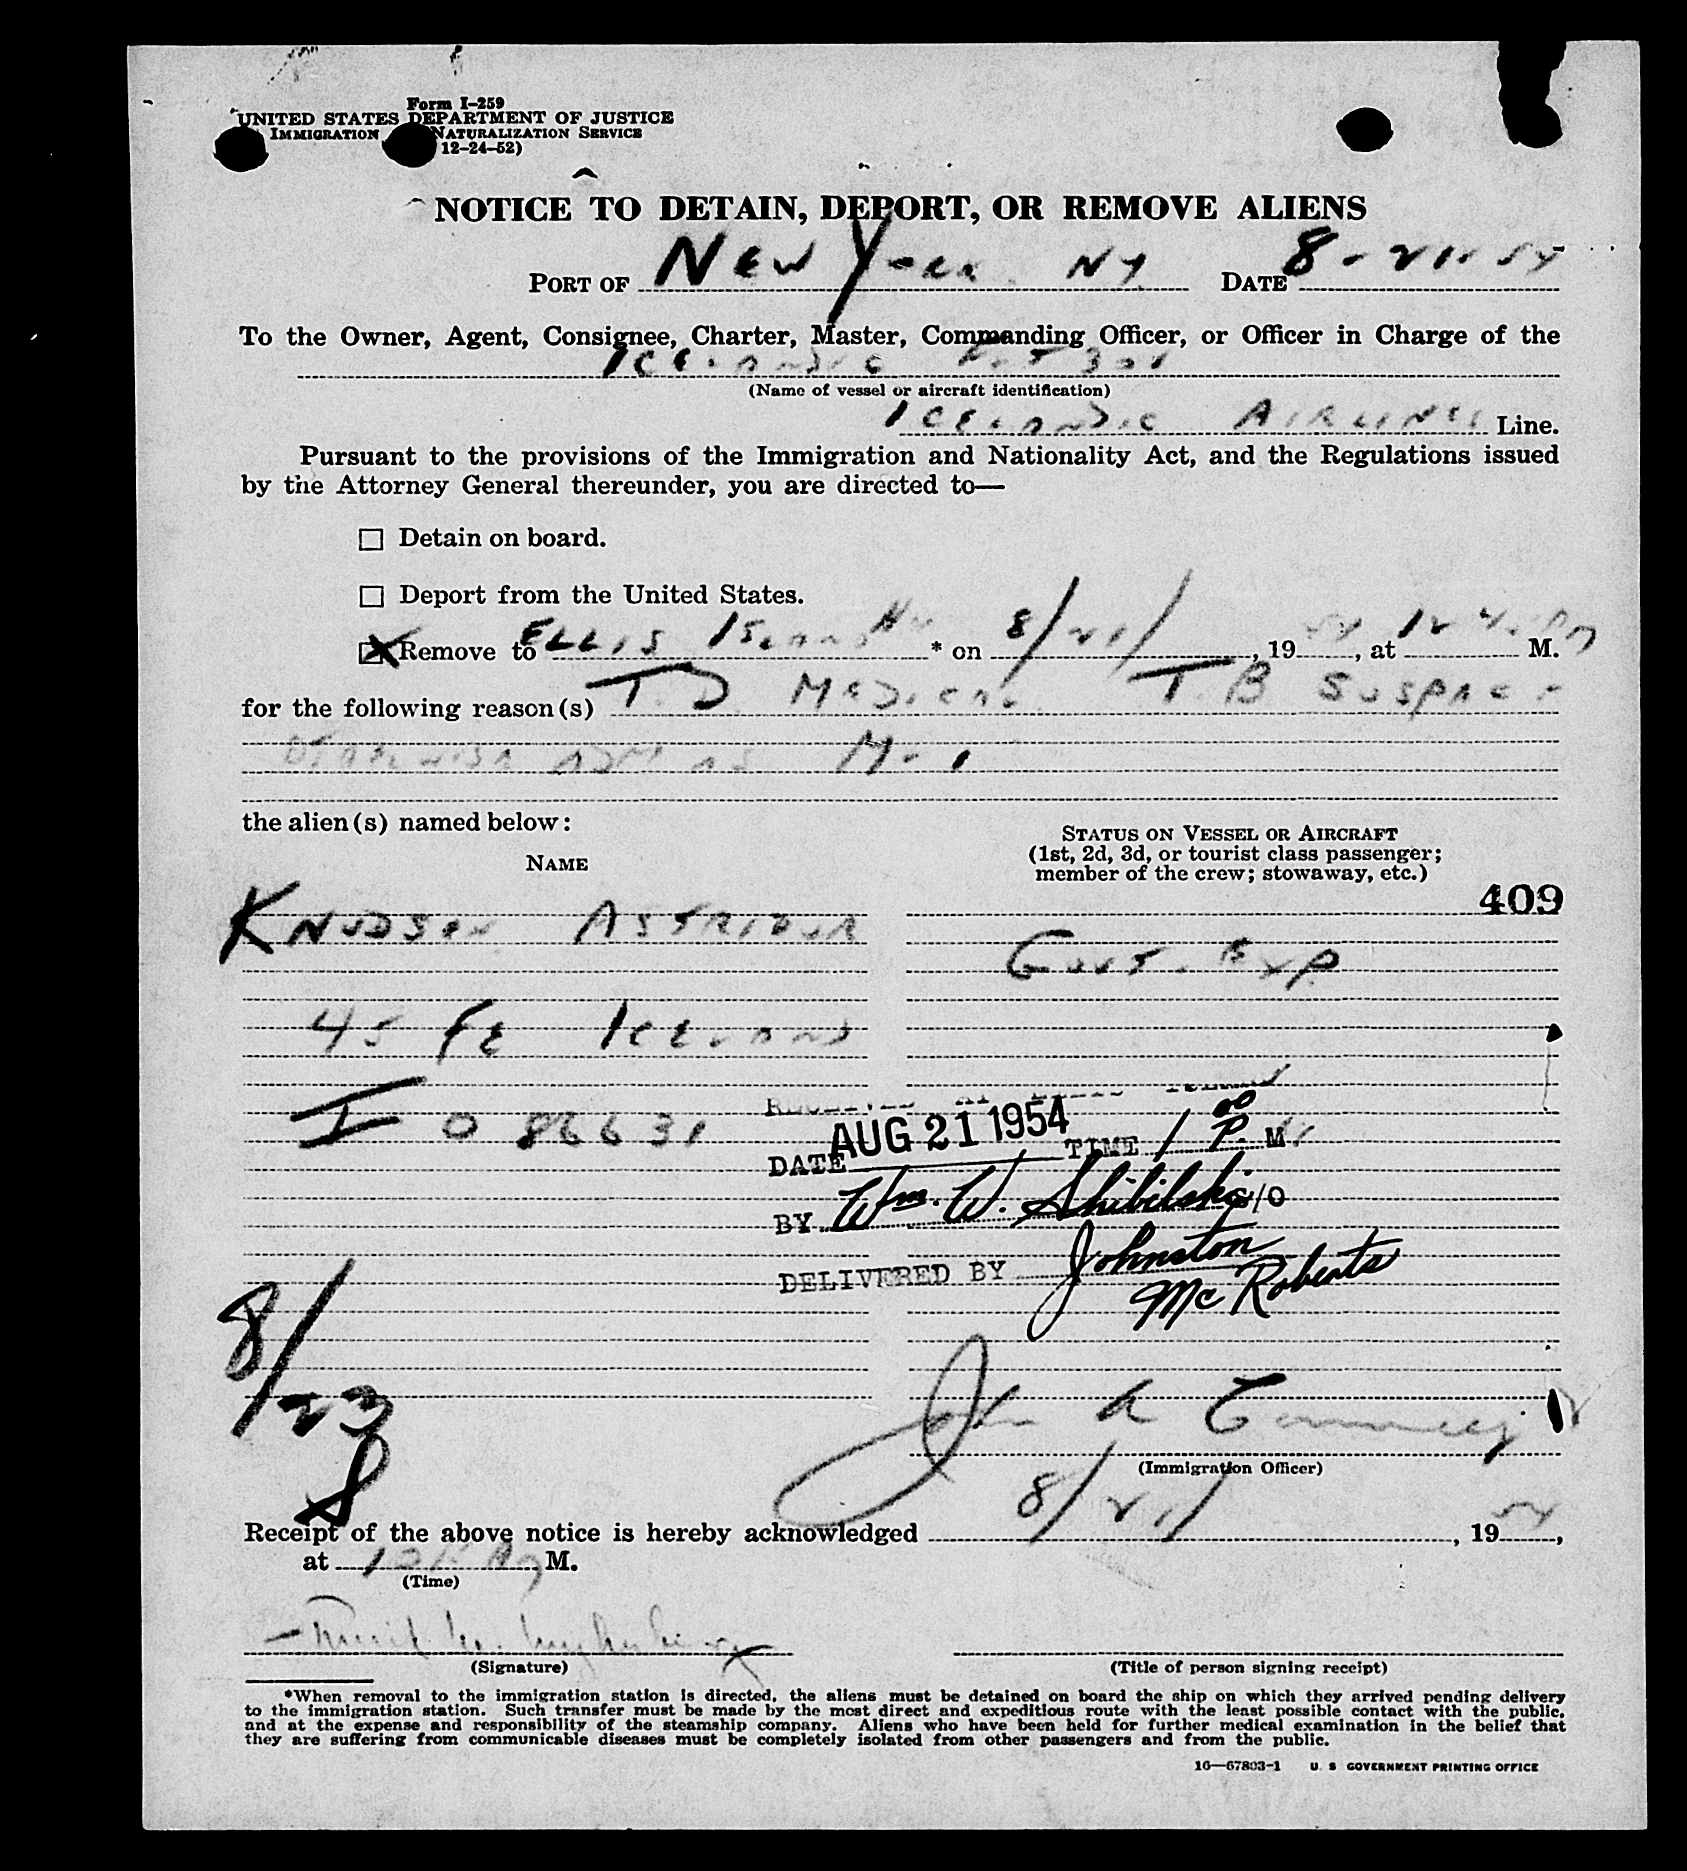 Form I-259
UNITED STATES DEPARTMENT OF JUSTICE
IMMIGRATION NATURALIZATION SERVICE
12-24-52)
NOTICE TO DETAIN, DEPORT, OR REMOVE ALIENS
PORT OF New York NY DATE 8-21-54
To the Owner, Agent, Consignee, Charter, Master, Commanding Officer, or Officer in Charge of the
ICELANDIC
(Name of vessel or aircraft identification)
ICELANDIC AIRLINES Line.
Pursuant to the provisions of the Immigration and Nationality Act, and the Regulations issued
by the Attorney General thereunder, you are directed to—
☐ Detain on board.
☐ Deport from the United States.
☒ Remove to ELLIS ISLAND NY * on 8/21/, 1954, at M.
for the following reason(s) T.D. MEDICAL T.B SUSPECT
OTHERWISE ADM AS
the alien(s) named below:
NAME
STATUS ON VESSEL OR AIRCRAFT
(1st, 2d, 3d, or tourist class passenger;
member of the crew; stowaway, etc.)
409
KNUDSEN ASTRIDUR
GOVT. EXP
45 FE ICELAND
I 086631
RECEIVED AT ELLIS ISLAND
DATE AUG 21 1954 TIME 1 00 P. M
BY Wm. W. Shibilski S/O
DELIVERED BY Johnston
McRoberts
8/23
John A
(Immigration Officer)
Receipt of the above notice is hereby acknowledged 8/21/, 1954,
at M.
(Time)
(Signature)
(Title of person signing receipt)
*When removal to the immigration station is directed, the aliens must be detained on board the ship on which they arrived pending delivery
to the immigration station. Such transfer must be made by the most direct and expeditious route with the least possible contact with the public,
and at the expense and responsibility of the steamship company. Aliens who have been held for further medical examination in the belief that
they are suffering from communicable diseases must be completely isolated from other passengers and from the public.
16—67803-1 U. S GOVERNMENT PRINTING OFFICE